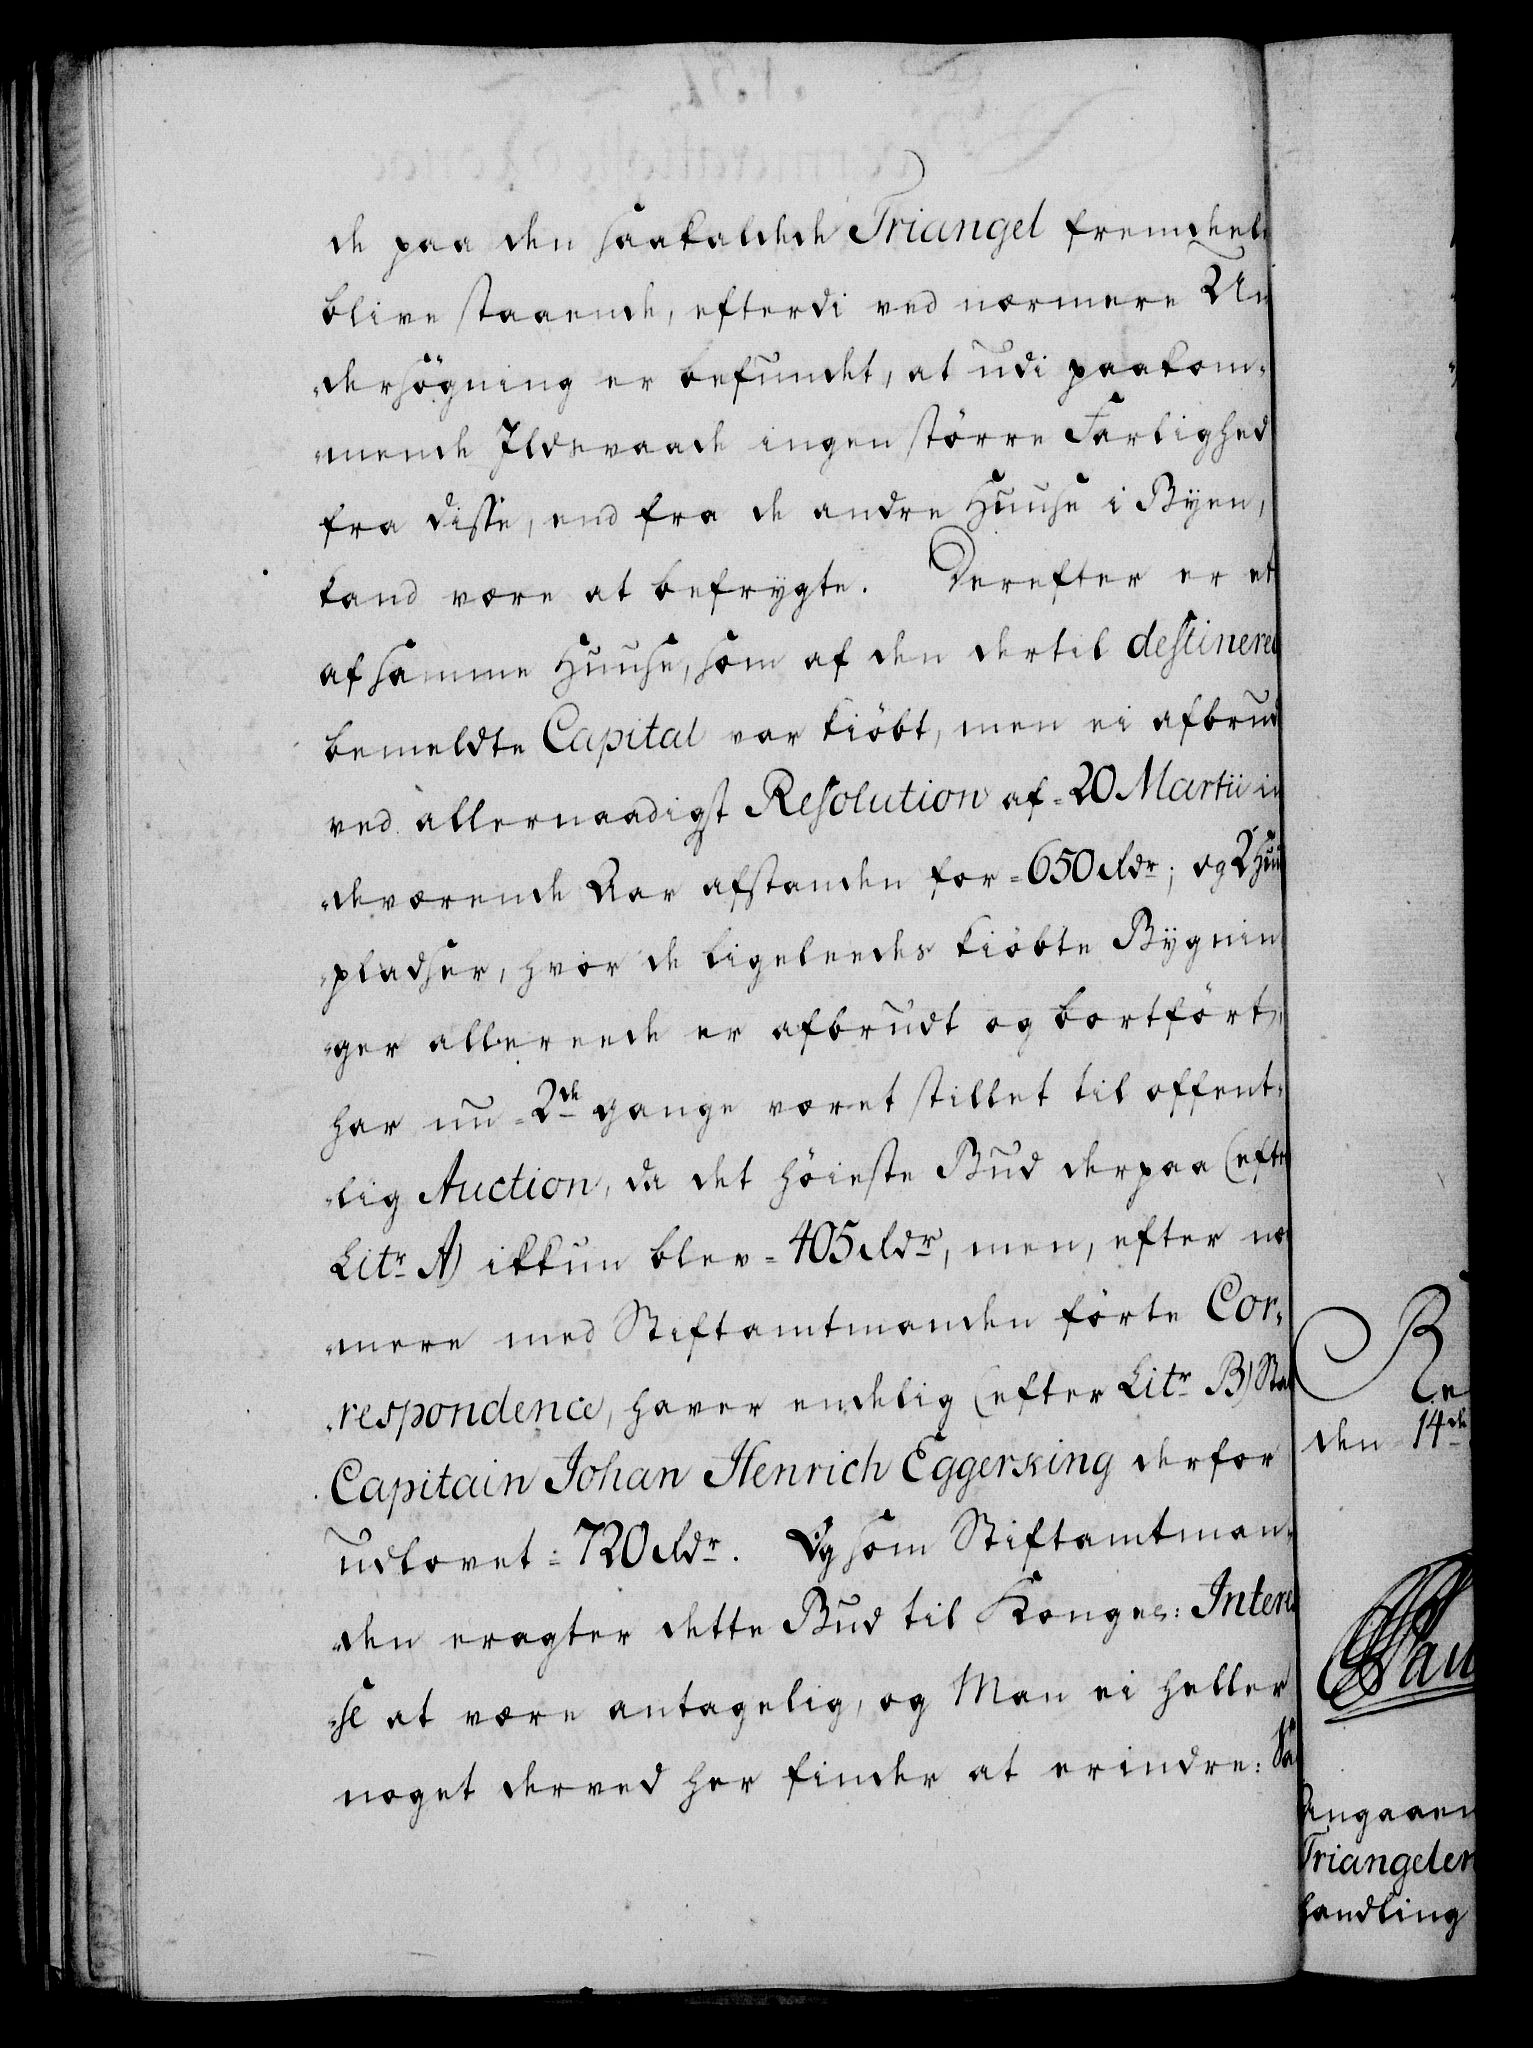 de paa den saakaldede Triangel fremdeele
blive staaende, efterdi ved nærmere Un
-dersögning er befundet, at udi paakom-
-mende Ildsvaade ingen större Farlighed
fra disse, end fra de andre Huuse i Byen,
kand være at befrygte. Derefter er et
af samme Huuse, som af den dertil destinere
bemeldte Capital var kiöbt, men ei afbrud
ved allernaadigst Resolution af 20 Martii in
-deværende Aar afstanden for 650 Rdr; og 2 Huu
-pladser, hvor de ligeleedes kiöbte Bygnin
-ger allereede er afbrudt og bortfört,
har nu 2de gange været stillet til offent-
-lig Auction, da det höieste Bud derpaa (efter
Litr A) ikkun blev 405 Rdr, men, efter næ
-mere med Stiftamtmanden förte Cor-
-respondence, haver endelig (efter Litr B) Sta
Capitain Johan Henrich Eggerking derfor
udlovet 720 Rdr. Og som Stiftamtman-
-den eragter dette Bud til Konges: Intere
-se at være antagelig, og Man ei heller
noget derved her finder at erindre: Sa
R
den 14de
Angaaen
Triangelen
handling